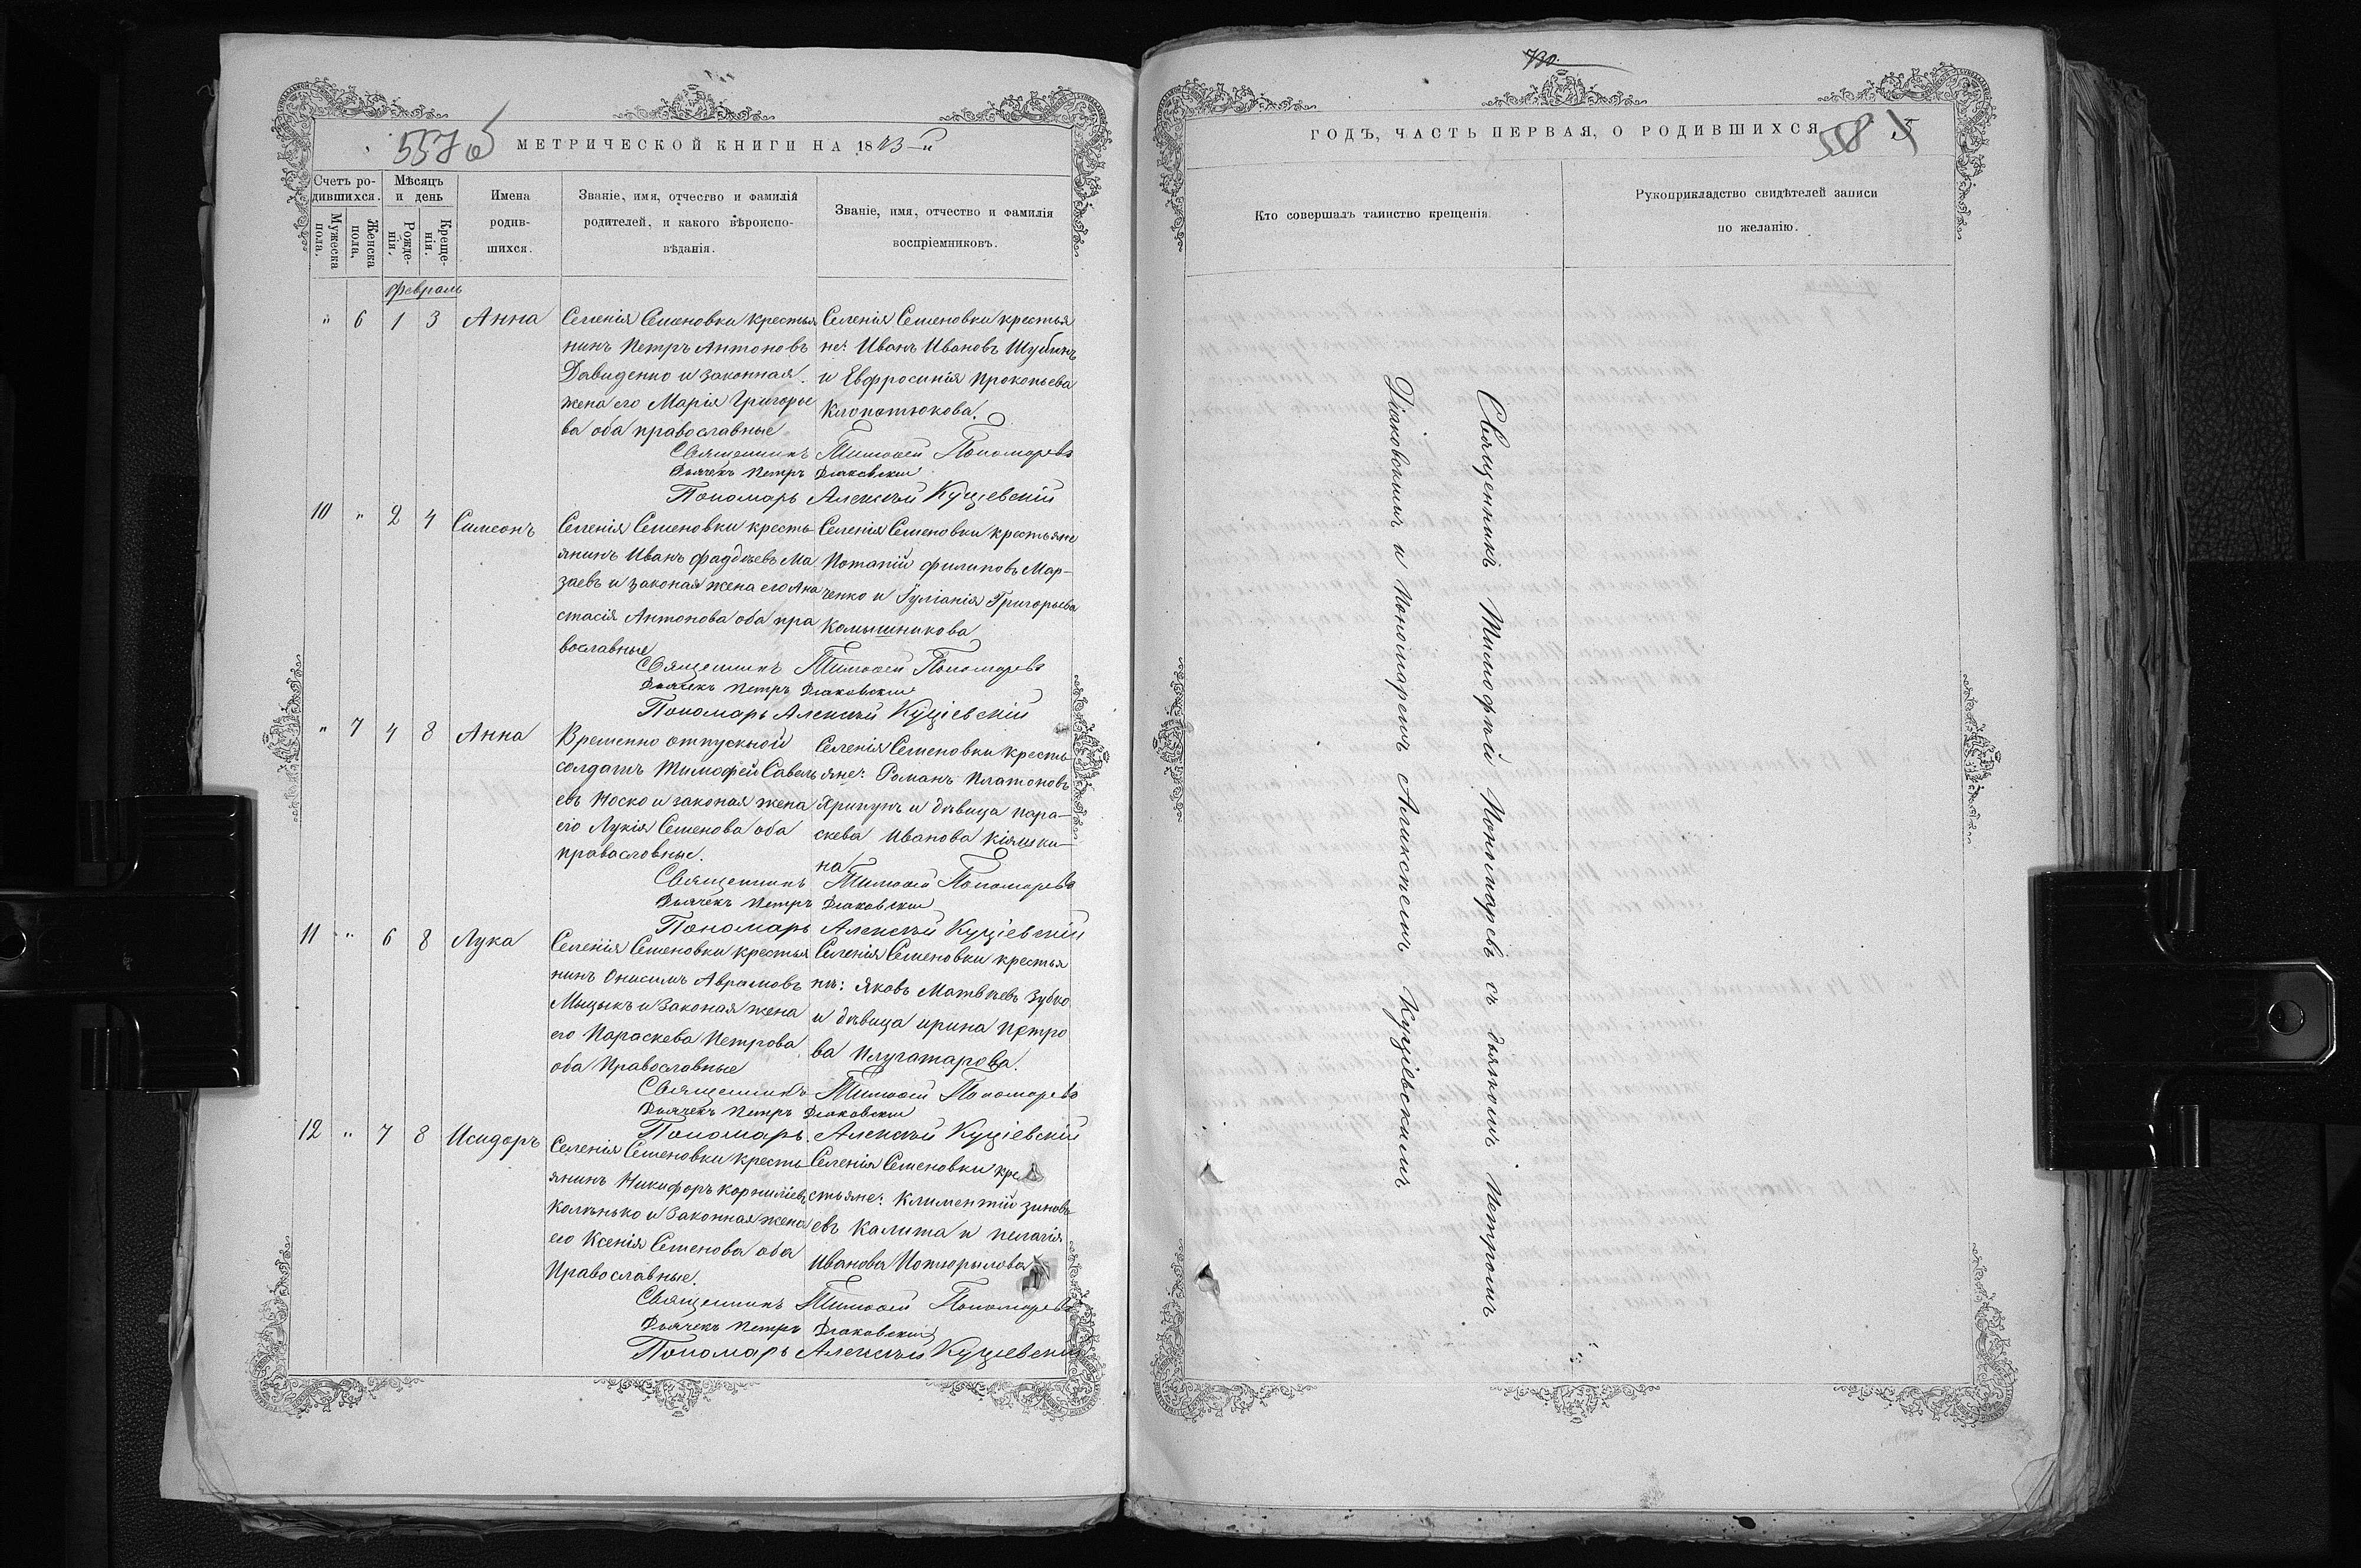 557 об
МЕТРИЧЕСКОЙ КНИГИ НА 1873-й
Счетъ родившихся.
Мѣсяцъ и день
Имена родившихся.
Званіе, имя, отчество и фамилія родителей, и какого вѣроисповѣданія.
Званіе, имя, отчество и фамилія воспріемниковъ.
Мужеска пола.
Женска пола.
Рожденія.
Крещенія.
Февраль
" 6 1 3 Анна
Селенія Семеновки крестья
нинъ Петръ Антоновъ
Давиденко и законная
жена его Марія Григорье
ва оба православные
Селенія Семеновки крестья
не: Иванъ Ивановъ Шубинъ
и Евфросинія Прокопьева
Клопотюкова.
Священникъ Тимофей Пономаревъ
Дьячекъ Петръ Діаковскій
Пономарь Алексѣй Куціевскій
10 " 2 4 Симеонъ
Селенія Семеновки кресть
янинъ Иванъ Фаддѣевъ Ма
заевъ и законая жена его Ана
стасія Антонова оба пра
вославные
Селенія Семеновки крестьяне
Потапій Филиповъ Мар-
ченко и Іуліанія Григорьева
Комышникова
Священникъ Тимофей Пономаревъ
Дьячекъ Петръ Діаковскій
Пономарь Алексѣй Куціевскій
" 7 4 8 Анна
Временно отпускной
солдатъ Тимофей Савель
евъ Носко и законая жена
его Лукія Семенова оба
православные.
Селенія Семеновки кресть
яне: Романъ Платоновъ
Ярипунъ и дѣвица Пара-
скева Иванова Кіяшки-
на
Священникъ Тимофей Пономаревъ
Дьячекъ Петръ Діаковскій
Пономарь Алексѣй Куціевскій
11 " 6 8 Лука
Селенія Семеновки крестья
нинъ Онисимъ Аврамовъ
Мицыкъ и законая жена
его Параскева Петрова
оба Православные
Селенія Семеновки крестья
не: Яковъ Матвѣевъ Зубко
и дѣвица Ирина Петро
ва Плугатарова.
Священникъ Тимофей Пономаревъ
Дьячекъ Петръ Діаковскій
Пономарь Алексѣй Куціевскій
12 " 7 8 Исидоръ
Селенія Семеновки кресть
янинъ Никифоръ Корниліевъ
Калѣнько и законная жена
его Ксенія Семенова оба
Православные.
Селенія Семеновки кре
стьяне: Климентій Зиновь
евъ Калита и Пелагія
Иванова
Священникъ Тимофей Пономаревъ
Дьячекъ Петръ Діаковскій
Пономарь Алексѣй Куціевскій
730.
ГОДЪ, ЧАСТЬ ПЕРВАЯ, О РОДИВШИХСЯ
558 5
Кто совершалъ таинство крещенія.
Рукоприкладство свидѣтелей записи
по желанію.
Священникъ Тимофѣй Пономаревъ съ дьячкомъ Петромъ
Діаковскимъ и Пономаремъ Аликсѣемъ Куціевскимъ